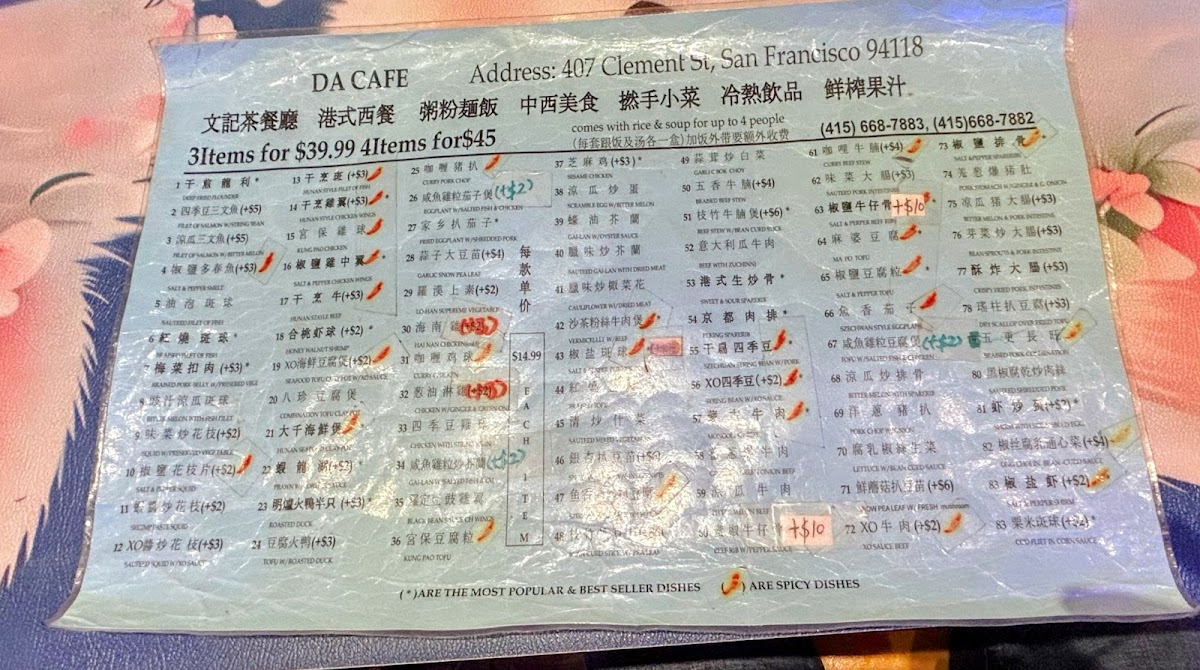 DA CAFE
Address: 407 Clement St, San Francisco 94118
文記茶餐廳 港式西餐 粥粉麵飯 中西美食 撚手小菜 冷熱飲品 鮮榨果汁
3Items for $39.99 4Items for$45
comes with rice & soup for up to 4 people
(每套跟饭及汤各一盒)加饭外带要额外收费
(415) 668-7883, (415)668-7882
1 干煎龍利*
DEEP FRIED FLOUNDER
2 四季豆三文魚(+$5)
FILET OF SALMON W/STRING BEAN
3 涼瓜三文魚(+$5)
FILET OF SALMON W/BITTER MELON
4 椒鹽多春魚(+$3)
SALT & PEPPER SMELT
5 油泡斑球
SAUTEED FILET OF FISH
6 紅燒斑球*
BRAISED FILET OF FISH
7 梅菜扣肉(+$3)*
BRAISED PORK BELLY W/PRESERVED VEGE
涼瓜斑球
BITTER MELON WITH FISH FILET
9 味菜炒花枝(+$2)
SQUID W/PRESERVED VEGETABLE
10 椒鹽花枝片(+$2)
SALT & PEPPER SQUID
11 蝦醬炒花枝(+$2)
SHRIMP PASTE SQUID
12 XO醬炒花枝(+$3)
SAUTEED SQUID W/XO SAUCE
13 干烹斑(+$3)
HUNAN STYLE FILET OF FISH
14 干烹雞翼(+$3)*
HUNAN STYLE CHICKEN WINGS
15 宮保雞球
KUNG PAO CHICKEN
16 椒鹽雞中翼*
SALT & PEPPER CHICKEN WINGS
17 干烹牛(+$3)
HUNAN STYLE BEEF
18 合桃虾球(+$2)*
HONEY WALNUT SHRIMP
19 XO海鮮豆腐煲(+$2)
SEAFOOD TOFU CLAYPOT W/XO SAUCE
20 八珍豆腐煲
COMBINATION TOFU CLAY POT
21 大千海鮮煲
22 蝦龍糊(+$2)*
23 明爐火鴨半只(+$3)*
ROASTED DUCK
24 豆腐火鴨(+$3)
TOFU W/ROASTED DUCK
25 咖喱猪扒
CURRY PORK CHOP
26 咸魚雞粒茄子煲(+$2)
EGGPLANT W/SALTED FISH & CHICKEN
27 家乡扒茄子*
FRIED EGGPLANT W/SHREDDED PORK
28 蒜子大豆苗(+$4)
GARLIC SNOW PEA LEAF
29 羅漢上素(+$2)
LO-HAN SUPREME VEGETABLE
30 海南雞(+$2)
HAI NAN CHICKEN
31 咖喱鸡球
CURRY CHICKEN
32 葱油淋雞(+$2)
CHICKEN W/GINGER & GREEN ONION
33 四季豆雞球
CHICKEN WITH STRING BEAN
34 咸魚雞粒炒芥蘭(+$2)
GAI-LAN W/SALTED FISH & CHICKEN
35 豉雞翼
BLACK BEAN SAUCE CH WINGS
36 宮保豆腐粒
KUNG PAO TOFU
每款单价
$14.99
EACH ITEM
37 芝麻鸡(+$3)*
SESAME CHICKEN
38 涼瓜炒蛋
SCRAMBLE EGG W/BITTER MELON
39 蠔油芥蘭
GAI-LAN W/OYSTER SAUCE
40 臘味炒芥蘭
SAUTEED GAI-LAN WITH DRIED MEAT
41 臘味炒椰菜花
CAULIFLOWER W/DRIED MEAT
42 沙茶粉絲牛肉煲
VERMICELLI W/BEEF
43 椒盐斑球
44
45 清炒什菜
SAUTEED MIXED VEGETABLE
46
47 魚香
48
49 蒜茸炒白菜
GARLIC BOK CHOY
50 五香牛腩(+$4)
BRAISED BEEF STEW
51 枝竹牛腩煲(+$6)*
BEEF STEW W/BEAN CURD STICK
52 意大利瓜牛肉
BEEF WITH ZUCCHINI
53 港式生炒骨*
SWEET & SOUR SPARERIB
54 京都肉排*
PEKING SPARERIB
55 干扁四季豆
SZECHUAN STRING BEAN W/PORK
56 XO四季豆(+$2)
STRING BEAN W/XO SAUCE
57 蒙古牛肉
MONGOLIAN BEEF
58 牛肉
59 涼瓜牛肉
BITTER MELON BEEF
60 菜椒牛仔骨 +$10
BEEF RIB W/PEPPER SAUCE
61 咖喱牛腩(+$4)
CURRY BEEF STEW
62 味菜大腸(+$3)
SAUTEED PORK INTESTINES
63 椒鹽牛仔骨 +$10
SALT & PEPPER BEEF RIB
64 麻婆豆腐
MA PO TOFU
65 椒鹽豆腐粒
SALT & PEPPER TOFU
66 魚香茄子
SZECHWAN STYLE EGGPLANT
67 咸魚雞粒豆腐煲(+$2)
TOFU W/SALTED FISH & CHICKEN
68 涼瓜炒排骨
BITTER MELON W/SPARERIB
69 洋蔥豬扒
PORK CHOP W/ONION
70 腐乳椒絲生菜
LETTUCE W/BEAN CURD SAUCE
71 鮮蘑菇扒豆苗(+$6)
SNOW PEA LEAF W/ FRESH mushroom
72 XO牛肉(+$2)
XO SAUCE BEEF
73 椒鹽排骨*
SALT & PEPPER SPARERIB
74 羌葱爆猪肚
PORK STOMACH W/GINGER & G. ONION
75 凉瓜猪大腸(+$3)
BITTER MELON & PORK INTESTINE
76 芽菜炒大腸(+$3)
BEAN SPROUTS & PORK INTESTINE
77 酥炸大腸(+$3)
DEEP FRIED PORK INTESTINE
78 瑤柱扒豆腐(+$3)
DRY SCALLOP OVER FRIED TOFU
五更長旺
BRAISED PORK
80 黑椒腐乾炒肉絲
SAUTEED SHREDDED PORK
81 虾炒蛋(+$2)*
82 椒丝腐乳通心菜(+$4)
83 椒盐虾(+$2)
SALT & PEPPER SHRIMP
83 栗米斑球(+$2)*
(*)ARE THE MOST POPULAR & BEST SELLER DISHES ( ) ARE SPICY DISHES